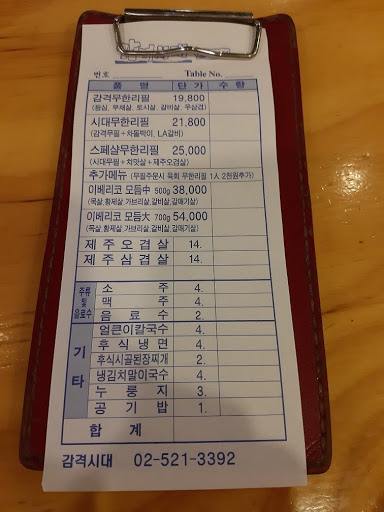 번호 Table No.
품 명 단 가 수 량
감격무한리필 19,800
(등심, 부채살, 토시살, 갈비살, 우삼겹)
시대무한리필 21,800
(감격무필+차돌박이, LA갈비)
스페샬무한리필 25,000
(시대무필+치맛살+제주오겹살)
추가메뉴 (무필주문시 육회 무한리필 1人 2천원추가)
이베리코 모듬中 500g 38,000
(목살,황제살,가브리살,갈비살,갈매기살)
이베리코 모듬大 700g 54,000
(목살,황제살,가브리살,갈비살,갈매기살)
제주오겹살 14.
제주삼겹살 14.
주류 및 음료수
소 주 4.
맥 주 4.
음 료 수 2.
기 타
얼큰이칼국수 4.
후 식 냉 면 4.
후식시골된장찌개 2.
냉김치말이국수 4.
누 룽 지 3.
공 기 밥 1.
합 계
감격시대 02-521-3392